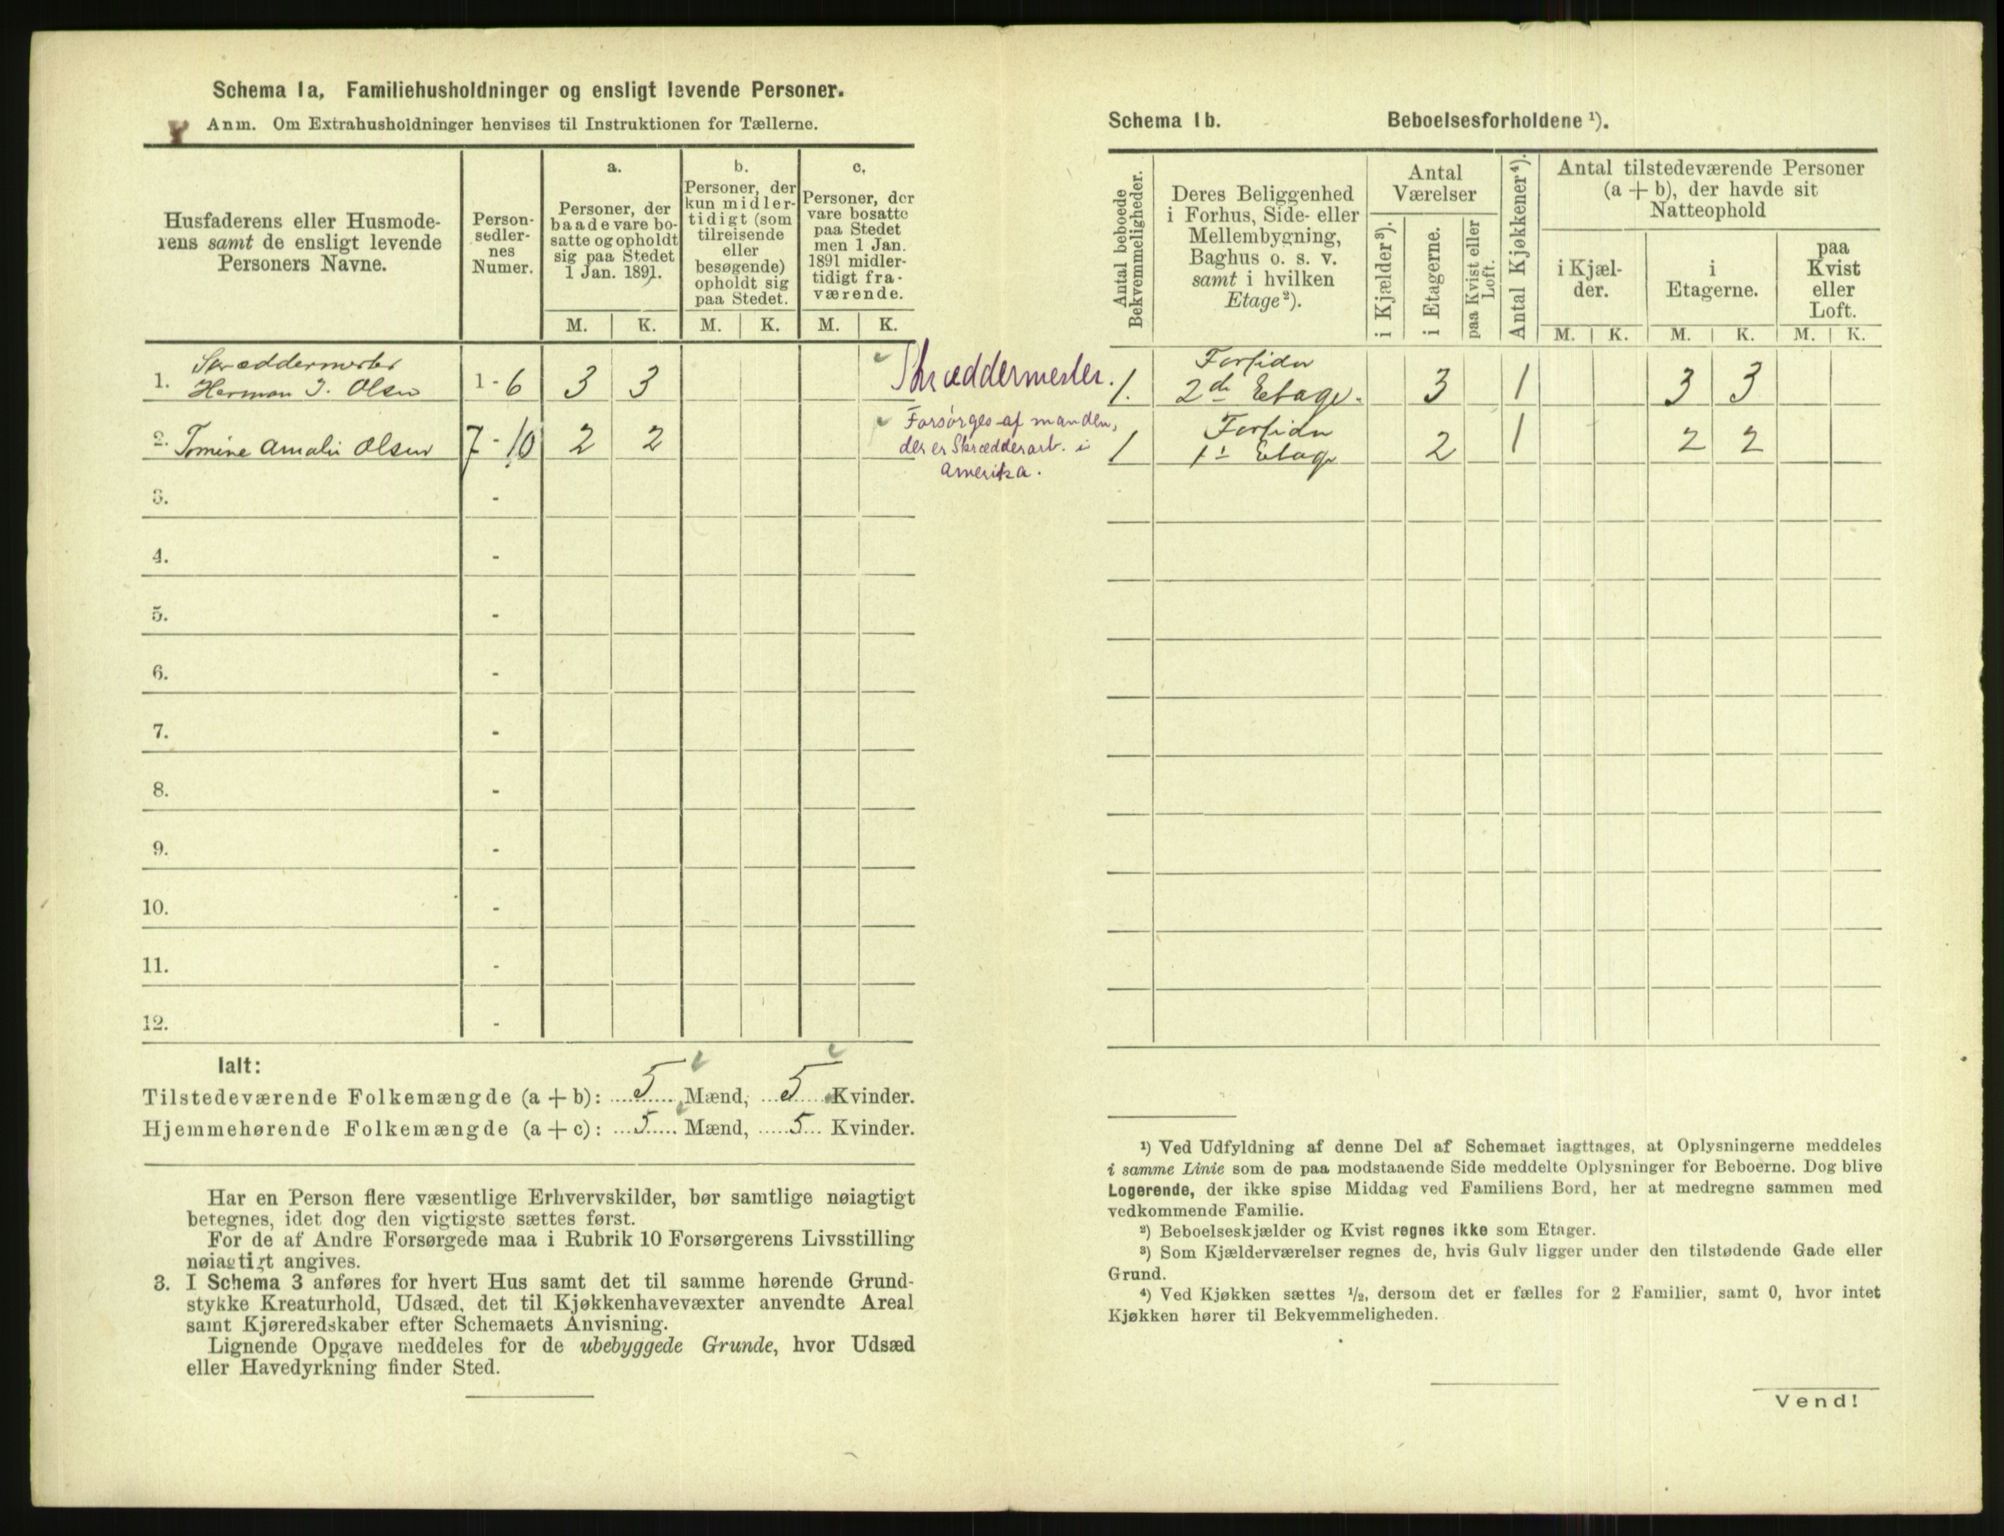 Schema 1a. Familiehusholdninger og ensligt levende Personer.
Anm. Om Extrahusholdninger henvises til Instruktionen for Tællerne.
Husfaderens eller Husmode-
rens samt de ensligt levende
Personers Navne.
Person-
sedler-
nes
Numer.
a.
Personer, der
baade vare bo-
satte og opholdt
sig paa Stedet
1 Jan. 1891.
M. K.
b.
Personer, der
kun midler-
tidigt (som
tilreisende
eller
besøgende)
opholdt sig
paa Stedet.
M. K.
c.
Personer, der
vare bosatte
paa Stedet
men 1 Jan.
1891 midler-
tidigt fra-
værende.
M. K.
Skræddermester
1. Herman J. Olsen 1 - 6 3 3 Skræddermester.
2. Tomine Amalie Olsen 7 - 10 2 2 Forsørges af manden,
der er Skrædderarb. i
Amerika.
3. -
4. -
5. -
6. -
7. -
8. -
9. -
10. -
11. -
12. -
Ialt:
Tilstedeværende Folkemængde (a + b): 5 Mænd, 5 Kvinder.
Hjemmehørende Folkemængde (a + c): 5 Mænd, 5 Kvinder.
Har en Person flere væsentlige Erhvervskilder, bør samtlige nøiagtigt
betegnes, idet dog den vigtigste sættes først.
For de af Andre Forsørgede maa i Rubrik 10 Forsørgerens Livsstilling
nøiagtigt angives.
3. I Schema 3 anføres for hvert Hus samt det til samme hørende Grund-
stykke Kreaturhold, Udsæd, det til Kjøkkenhavevæxter anvendte Areal
samt Kjøreredskaber efter Schemaets Anvisning.
Lignende Opgave meddeles for de ubebyggede Grunde, hvor Udsæd
eller Havedyrkning finder Sted.
Schema 1b. Beboelsesforholdene ¹).
Antal beboede
Bekvemmeligheder.
Deres Beliggenhed
i Forhus, Side- eller
Mellembygning,
Baghus o. s. v.
samt i hvilken
Etage ²).
Antal
Værelser
i Kjælder ³).
i Etagerne.
paa Kvist eller
Loft.
Antal Kjøkkener ⁴).
Antal tilstedeværende Personer
(a + b), der havde sit
Natteophold
i Kjæl-
der.
i
Etagerne.
paa
Kvist
eller
Loft.
M. K. M. K. M. K.
Forsiden
1. 2de Etage. 3 1 3 3
Forsiden
1 1ste Etage 2 1 2 2
¹) Ved Udfyldning af denne Del af Schemaet iagttages, at Oplysningerne meddeles
i samme Linie som de paa modstaaende Side meddelte Oplysninger for Beboerne. Dog blive
Logerende, der ikke spise Middag ved Familiens Bord, her at medregne sammen med
vedkommende Familie.
²) Beboelseskjælder og Kvist regnes ikke som Etager.
³) Som Kjælderværelser regnes de, hvis Gulv ligger under den tilstødende Gade eller
Grund.
⁴) Ved Kjøkken sættes ½, dersom det er fælles for 2 Familier, samt 0, hvor intet
Kjøkken hører til Bekvemmeligheden.
Vend!